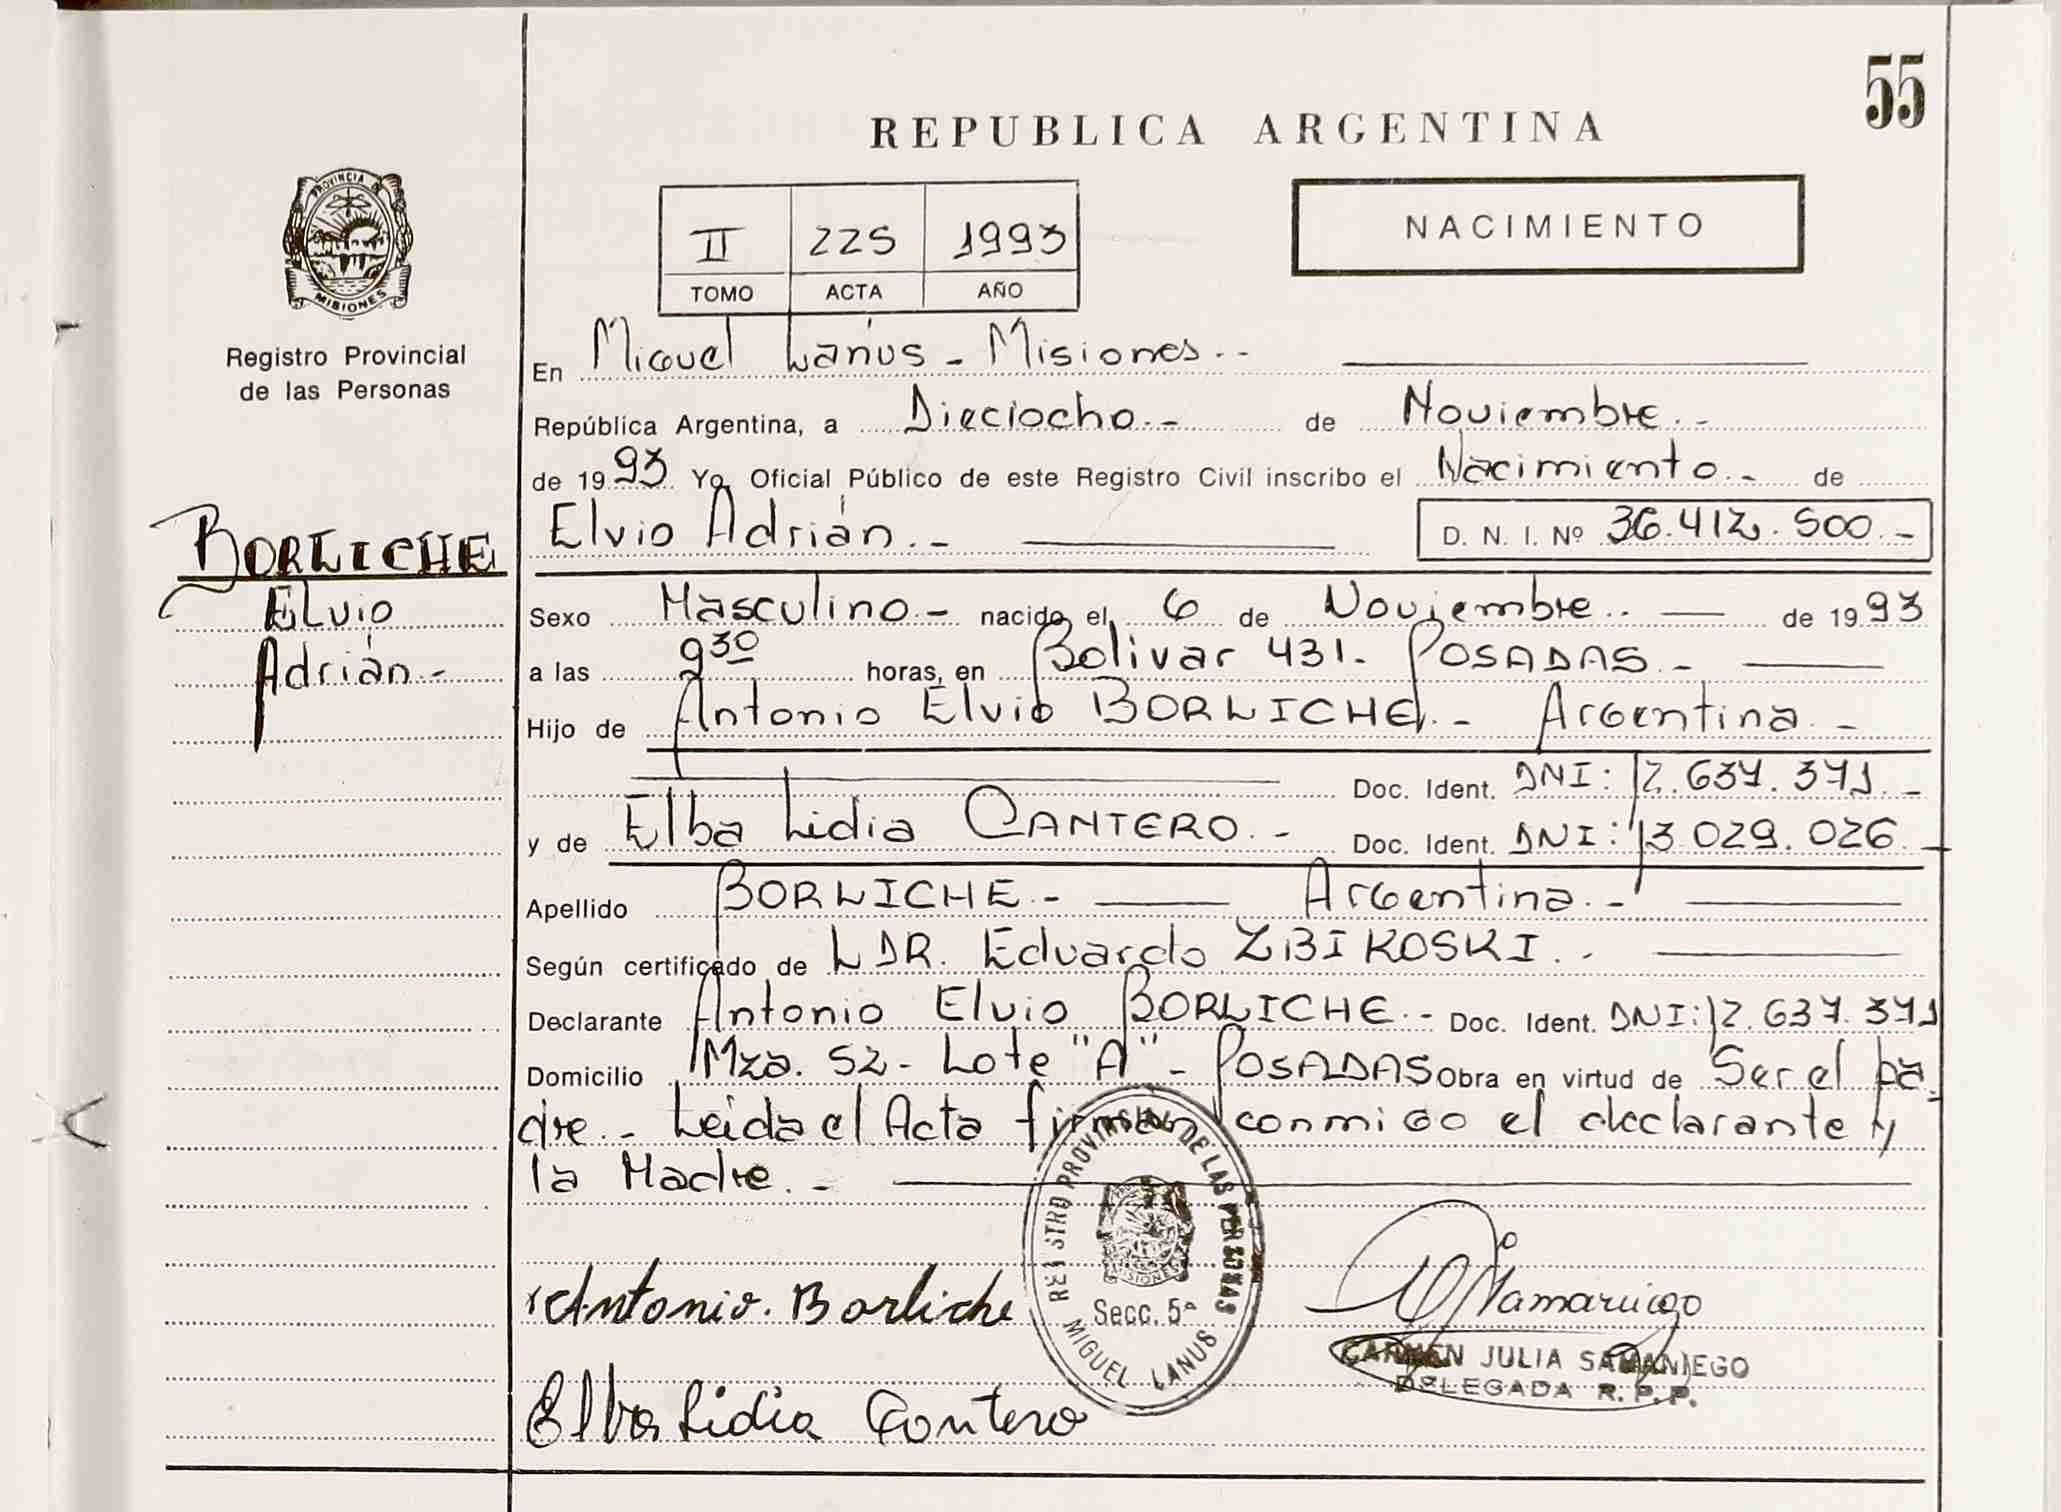 55
REPUBLICA ARGENTINA
PROVINCIA D
MISIONES
Registro Provincial
de las Personas
II 225 1993
TOMO ACTA AÑO
NACIMIENTO
En Miguel Lanús - Misiones.-
República Argentina, a Dieciocho.- de Noviembre.-
de 1993 Yo, Oficial Público de este Registro Civil inscribo el Nacimiento.- de
Elvio Adrián.- D. N. I. Nº 36.412.500.-
BORLICHE
Elvio
Adrián.-
Sexo Masculino.- nacido el, 6 de Noviembre.. de 1993
a las 9 30 horas, en Bolivar 431- POSADAS.-
Hijo de Antonio Elvio BORLICHE.- Argentina.-
Doc. Ident. DNI: 12.637.371.-
y de Elba Lidia CANTERO.- Doc. Ident. DNI: 13.029.026.-
Apellido BORLICHE.- Argentina.-
Según certificado de LDR. Eduardo ZBIKOSKI..
Declarante Antonio Elvio BORLICHE.- Doc. Ident. DNI: 12.637.371
Domicilio Mza. 52- Lote "A"- POSADAS Obra en virtud de Ser el pa-
dre.- Leida el Acta firman conmigo el declarante y
la Madre.-
REGISTRO PROVINCIAL DE LAS PERSONAS
MISIONES
Secc. 5ª
MIGUEL LANUS
Antonio. Borliche
CARMEN JULIA SAMANIEGO
DELEGADA R. P. P.
Elba Lidia Cantero